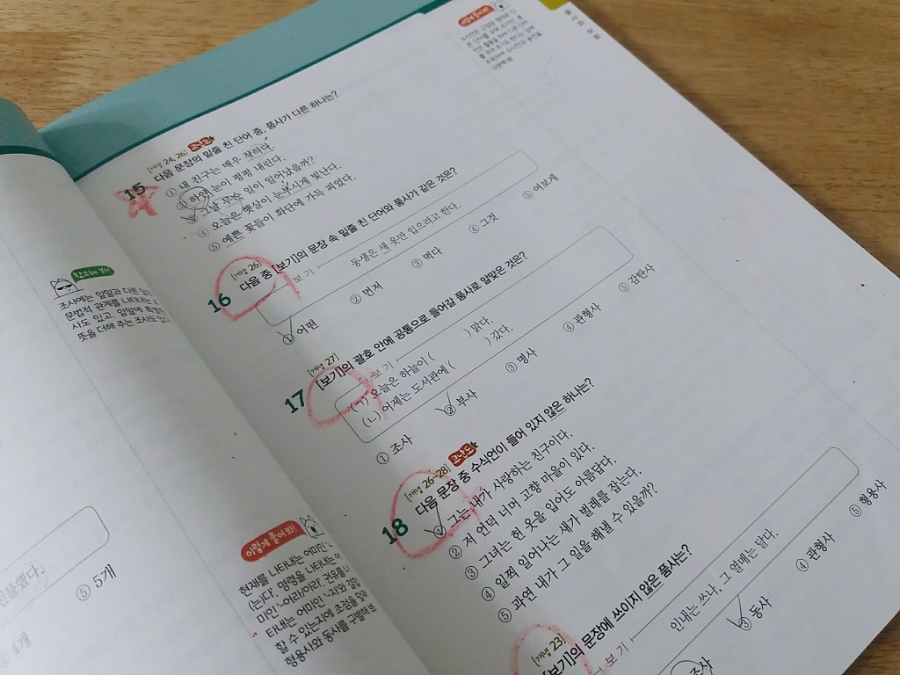 15
[개념 24, 26] 고난도
다음 문장의 밑줄 친 단어 중, 품사가 다른 하나는?
① 내 친구는 매우 착하다.
② 하얀 눈이 펑펑 내린다.
③ 그날 무슨 일이 일어났을까?
④ 오늘은 햇살이 눈부시게 빛난다.
⑤ 예쁜 꽃들이 화단에 가득 피었다.
16
[개념 26]
다음 중 [보기]의 문장 속 밑줄 친 단어와 품사가 같은 것은?
보기
동생은 새 옷만 입으려고 한다.
① 어떤
② 먼저
③ 먹다
④ 그것
⑤ 여보게
17
[개념 27]
[보기]의 괄호 안에 공통으로 들어갈 품사로 알맞은 것은?
보기
(ㄱ) 오늘은 하늘이 ( ) 맑다.
(ㄴ) 어제는 도서관에 ( ) 갔다.
① 조사
② 부사
③ 명사
④ 관형사
⑤ 감탄사
18
[개념 26~28] 고난도
다음 문장 중 수식언이 들어 있지 않은 하나는?
① 그는 내가 사랑하는 친구이다.
② 저 언덕 너머 고향 마을이 있다.
③ 그녀는 헌 옷을 입어도 아름답다.
④ 일찍 일어나는 새가 벌레를 잡는다.
⑤ 과연 내가 그 일을 해낼 수 있을까?
[개념 23]
[보기]의 문장에 쓰이지 않은 품사는?
보기
인내는 쓰나, 그 열매는 달다.
조사
③ 동사
④ 관형사
⑤ 형용사
조사에는 앞말과 다른
문법적 관계를 나타내는
사도 있고, 앞말에 특별한
뜻을 더해 주는 조사도 있
이렇게 풀어 봐!
현재를 나타내는 어미인
(는)다', 명령을 나타내는 어
미인 '-어라/아라',
타내는 어미인 '-자'와
할 수 있는지에 초점을
형용사와 동사를 구별해 보
⑤ 5개
④ 4개